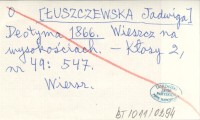 O [ŁUSZCZEWSKA Jadwiga]
Deotyma 1866. Wieszcz na
wysokościach. – Kłosy 2,
nr 49: 547.
Wiersz.
bT 1011/